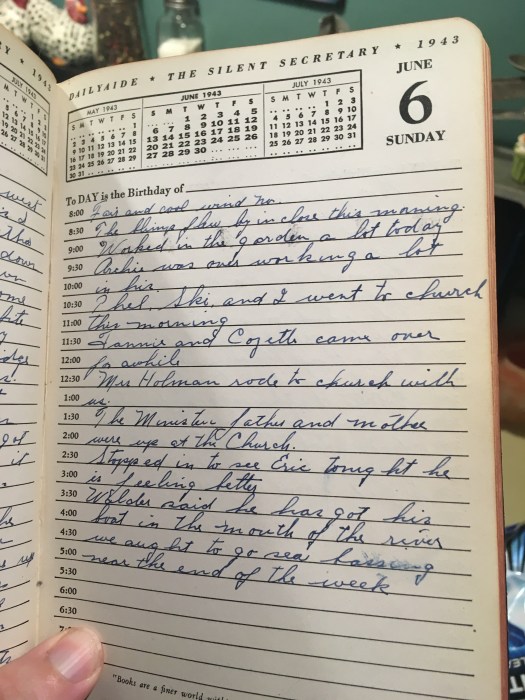 DAILYAIDE ★ THE SILENT SECRETARY ★ 1943
JUNE
6
SUNDAY
MAY 1943
S M T W T F S
1
2 3 4 5 6 7 8
9 10 11 12 13 14 15
16 17 18 19 20 21 22
23 24 25 26 27 28 29
30 31
JUNE 1943
S M T W T F S
1 2 3 4 5
6 7 8 9 10 11 12
13 14 15 16 17 18 19
20 21 22 23 24 25 26
27 28 29 30
JULY 1943
S M T W T F S
1 2 3
4 5 6 7 8 9 10
11 12 13 14 15 16 17
18 19 20 21 22 23 24
25 26 27 28 29 30 31
To DAY is the Birthday of
8:00 Fair and cool wind no.
8:30 The blimp flew by in close this morning.
9:00 Worked in the garden a lot today
9:30 Archie was over working a lot
10:00 in his.
10:30 Phel, Ski, and I went to church
11:00 this morning
11:30 Fannie and Cozette came over
12:00 for awhile
12:30 Mrs Holman rode to church with
1:00 us.
1:30 The Minister father and mother
2:00 were up at the Church.
2:30 Stopped in to see Eric tonight he
3:00 is feeling better
3:30 Walder said he has got his
4:00 boat in the mouth of the river
4:30 we aught to go sea bassing
5:00 near the end of the week
5:30
6:00
6:30
"Books are a finer world